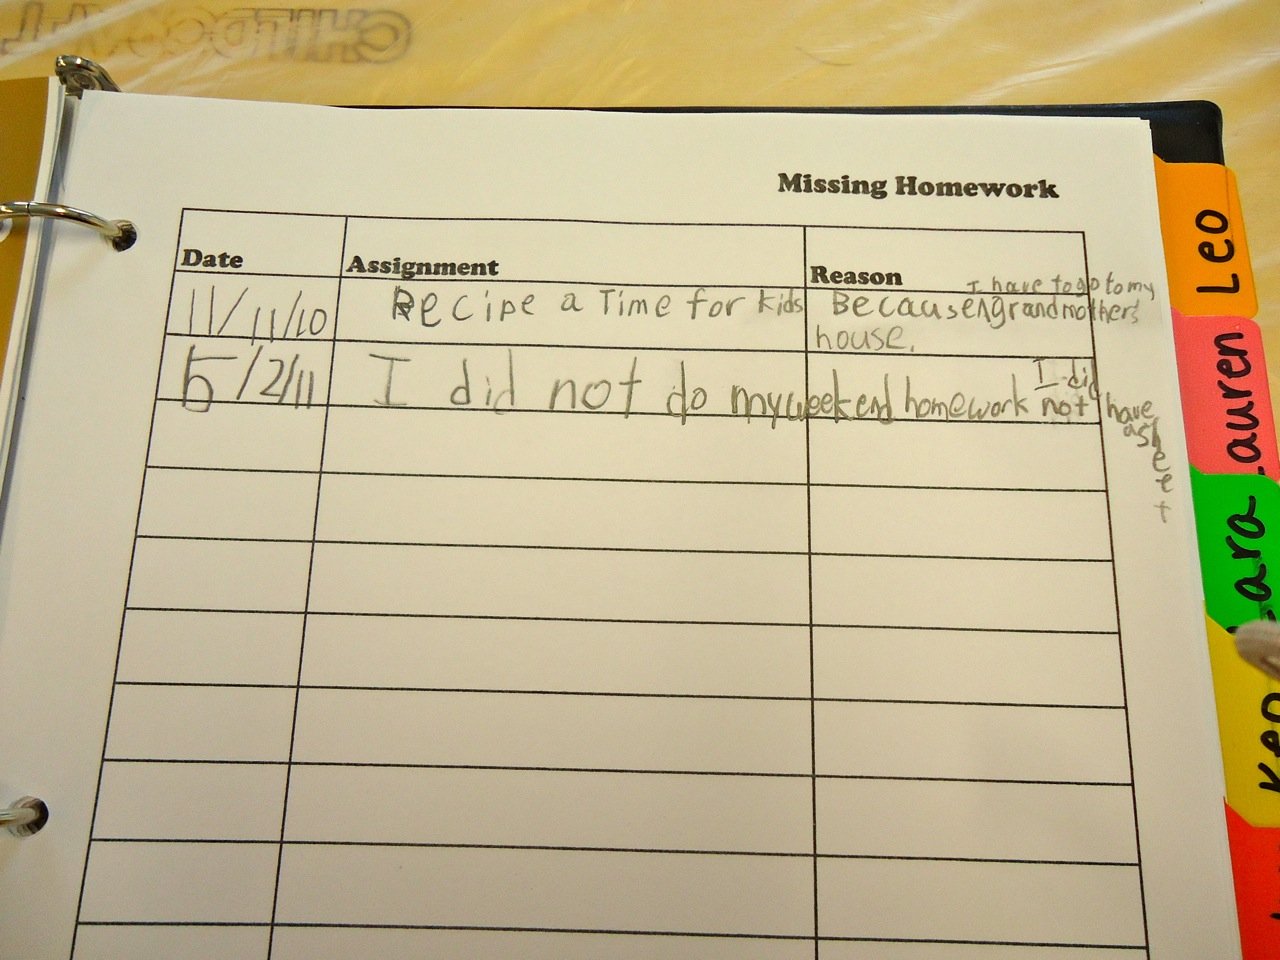 Missing Homework
Date Assignment Reason
11/11/10 Recipe a Time for kids Because I have to go to my grandmothers
house.
5/2/11 I did not do my weekend homework I did
not have
a sheet
Leo
Lauren
ara
Ken